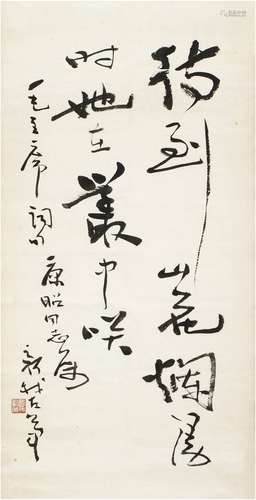 待到山花烂漫
时她在丛中咲
毛主席词句
康昭同志属